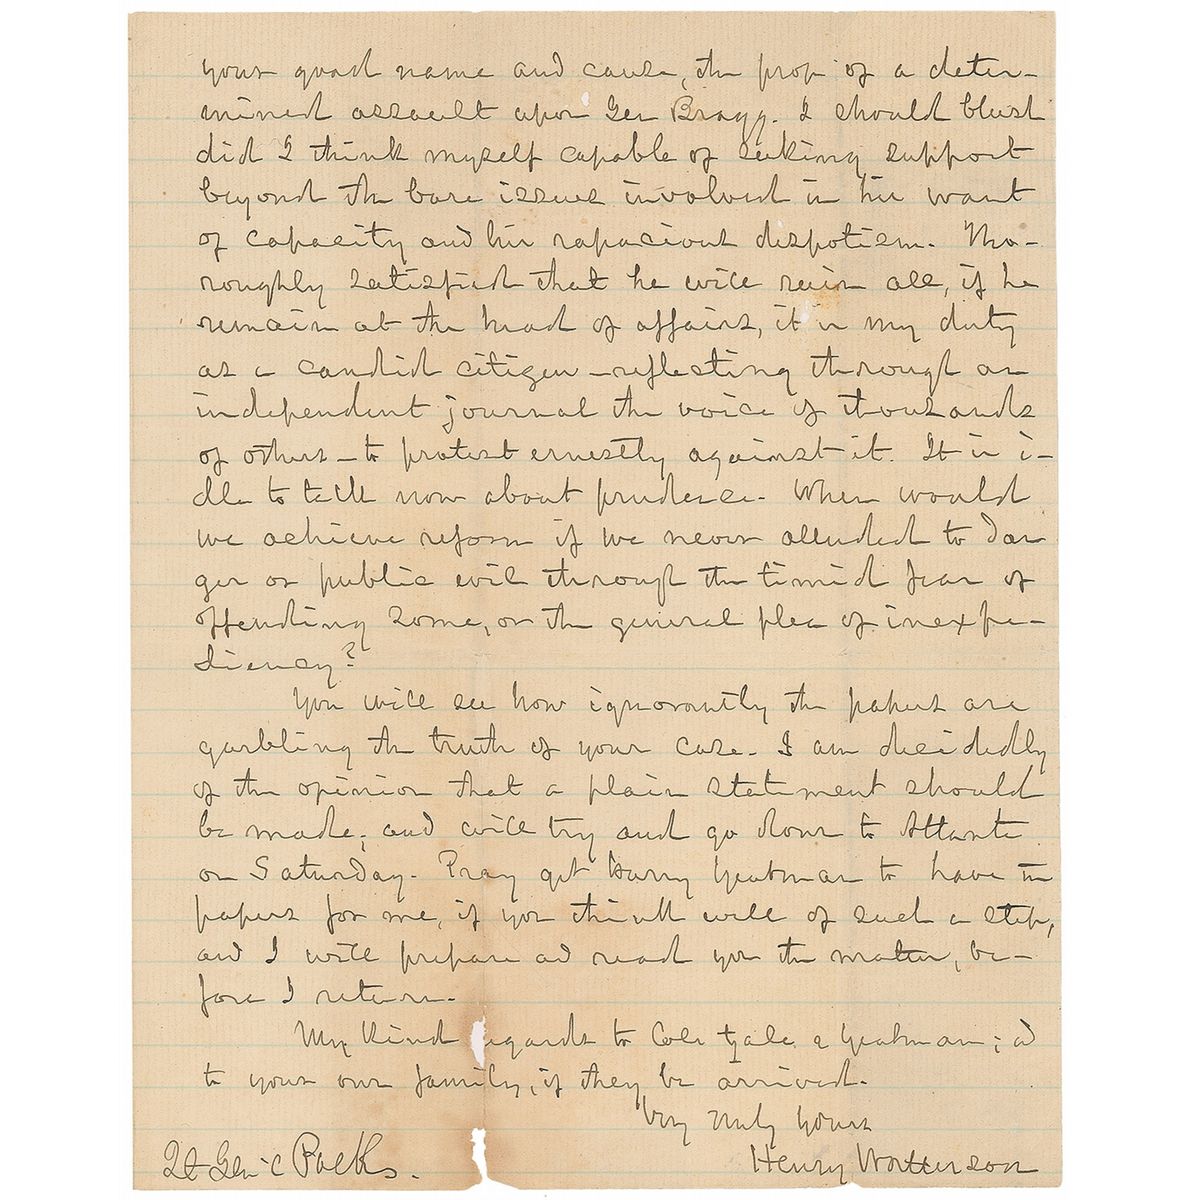 your good name and cause, the prop of a deter-
mined assault upon Gen Bragg. I should blush
did I think myself capable of seeking support
beyond the bare issues involved in his want
of capacity and his rapacious despotism. Tho-
roughly satisfied that he will ruin all, if he
remain at the head of affairs, it is my duty
as a candid citizen – reflecting through an
independent journal the voice of thousands
of others – to protest ernestly against it. It is i-
dle to talk now about prudence. When would
we achieve reform if we never alluded to dan
ger or public evil through the timid fear of
offending some, or the general plea of inexpe-
diency?
You will see how ignorantly the papers are
garbling the truth of your case. I am decidedly
of the opinion that a plain statement should
be made; and will try and go down to Atlanta
on Saturday. Pray get Harry Yeatman to have the
papers for me, if you think well of such a step,
and I will prepare and read you the matter, be-
fore I return.
My kind regards to Cols Gale & Yeatman; and
to your own family, if they be arrived.
Very truly yours
Henry Watterson
Lt Gen'l Polk.